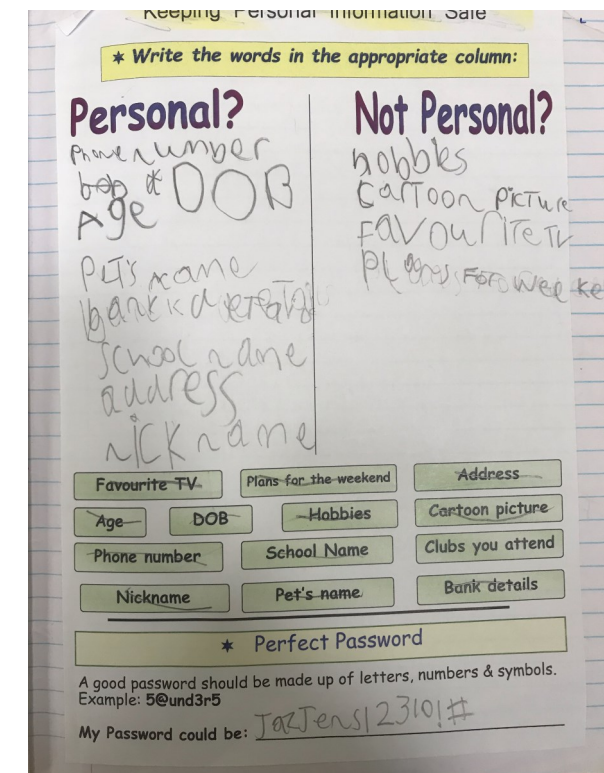 Keeping Personal Information Safe
★ Write the words in the appropriate column:
Personal?
Phone number
DOB
Age
Pet's name
bank
school name
address
nickname
Not Personal?
hobbies
cartoon picture
Favourite TV
Favourite TV Plans for the weekend Address
Age DOB Hobbies Cartoon picture
Phone number School Name Clubs you attend
Nickname Pet's name Bank details
★ Perfect Password
A good password should be made up of letters, numbers & symbols.
Example: 5@und3r5
My Password could be: JazJens12310!#